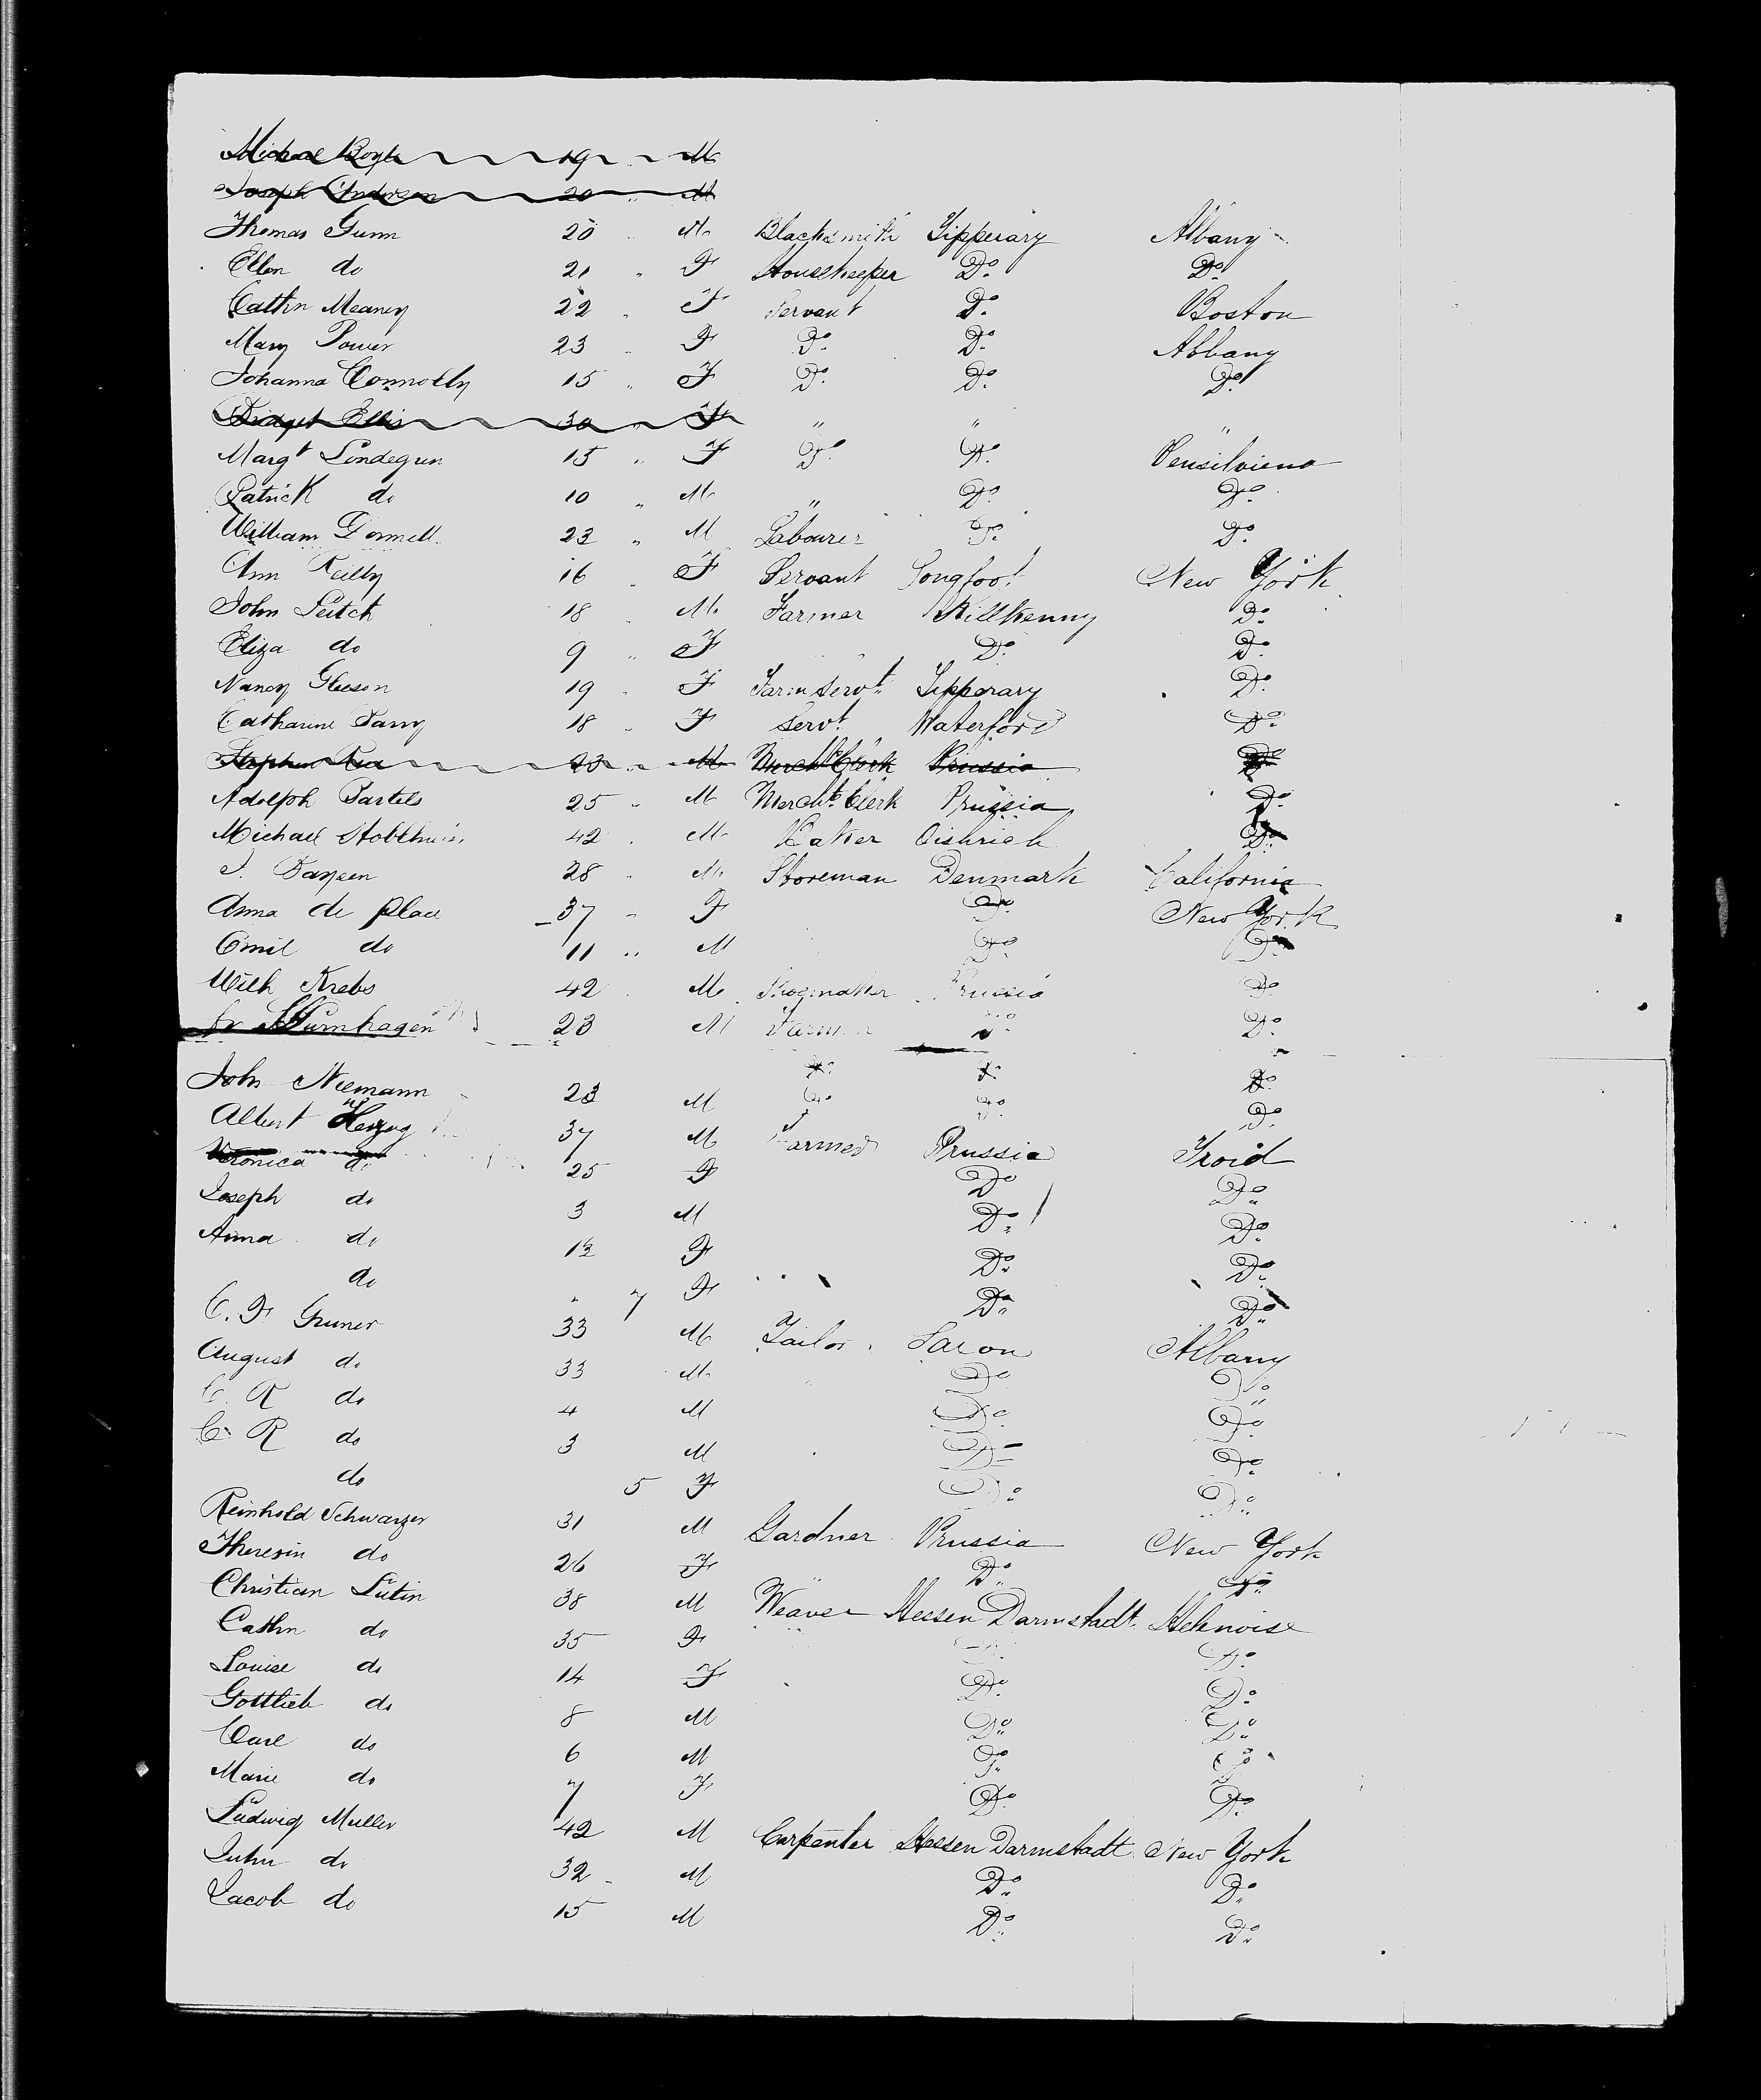 Michael Boyle 19 " M
Joseph Anderson 20 " M
Thomas Gunn 20 " M Blacksmith Tipperary Albany
Ellen do 21 " F Housekeeper Do Do
Cathn Meaney 22 " F Servant Do Boston
Mary Power 23 " F Do Do Albany
Johanna Connolly 15 " F Do Do Do
Bridget Ellis 30 " F " " "
Margt Londegren 15 " F Do Do Pensilviena
Patrick do 10 " M " Do Do
William Donnell 23 " M Labourer Do Do
Ann Reilly 16 " F Servant Longfoot New York
John Leitch 18 " M Farmer Killkenny Do
Eliza do 9 " F Do Do
Nancy Gleeson 19 " F Farm Servt Tipperary Do
Catharine Parry 18 " F Servt Waterford Do
Stephen 23 " M Mercht Clerk Prussia Do
Adolph Bartels 25 " M Mercht Clerk Prussia Do
Michael 42 " M Baker Do
J. 28 " M Storeman Denmark California
Anna de place 37 " F Do New York
Emil do 11 " M Do Do
Wilh Krebs 42 M Shoemaker Prussia Do
fr 23 M Farmer Do Do
Do Do Do
John Niemann 23 M Do Do Do
Albert Herzog 37 M Farmer Prussia Troid
Veronica do 25 F Do Do
Joseph do 3 M Do Do
Anna do 1½ F Do Do
do " 7 F Do Do
C. F Gruner 33 M Tailor Saxon Albany
August do 33 M Do Do
C. R do 4 M Do Do
C. R do 3 M Do Do
do 5 F Do Do
Reinhold Schwarzer 31 M Gardner Prussia New York
Theresin do 26 F Do Do
Christian Lutin 38 M Weaver Hessen Darmstadt Helenoise
Cathn do 35 F Do Do
Louise do 14 F Do Do
Gottlieb do 8 M Do Do
Carl do 6 M Do Do
Marie do 7 F Do Do
Ludwig Muller 42 M Carpenter Hessen Darmstadt New York
do 32 M Do Do
Jacob do 15 M Do Do